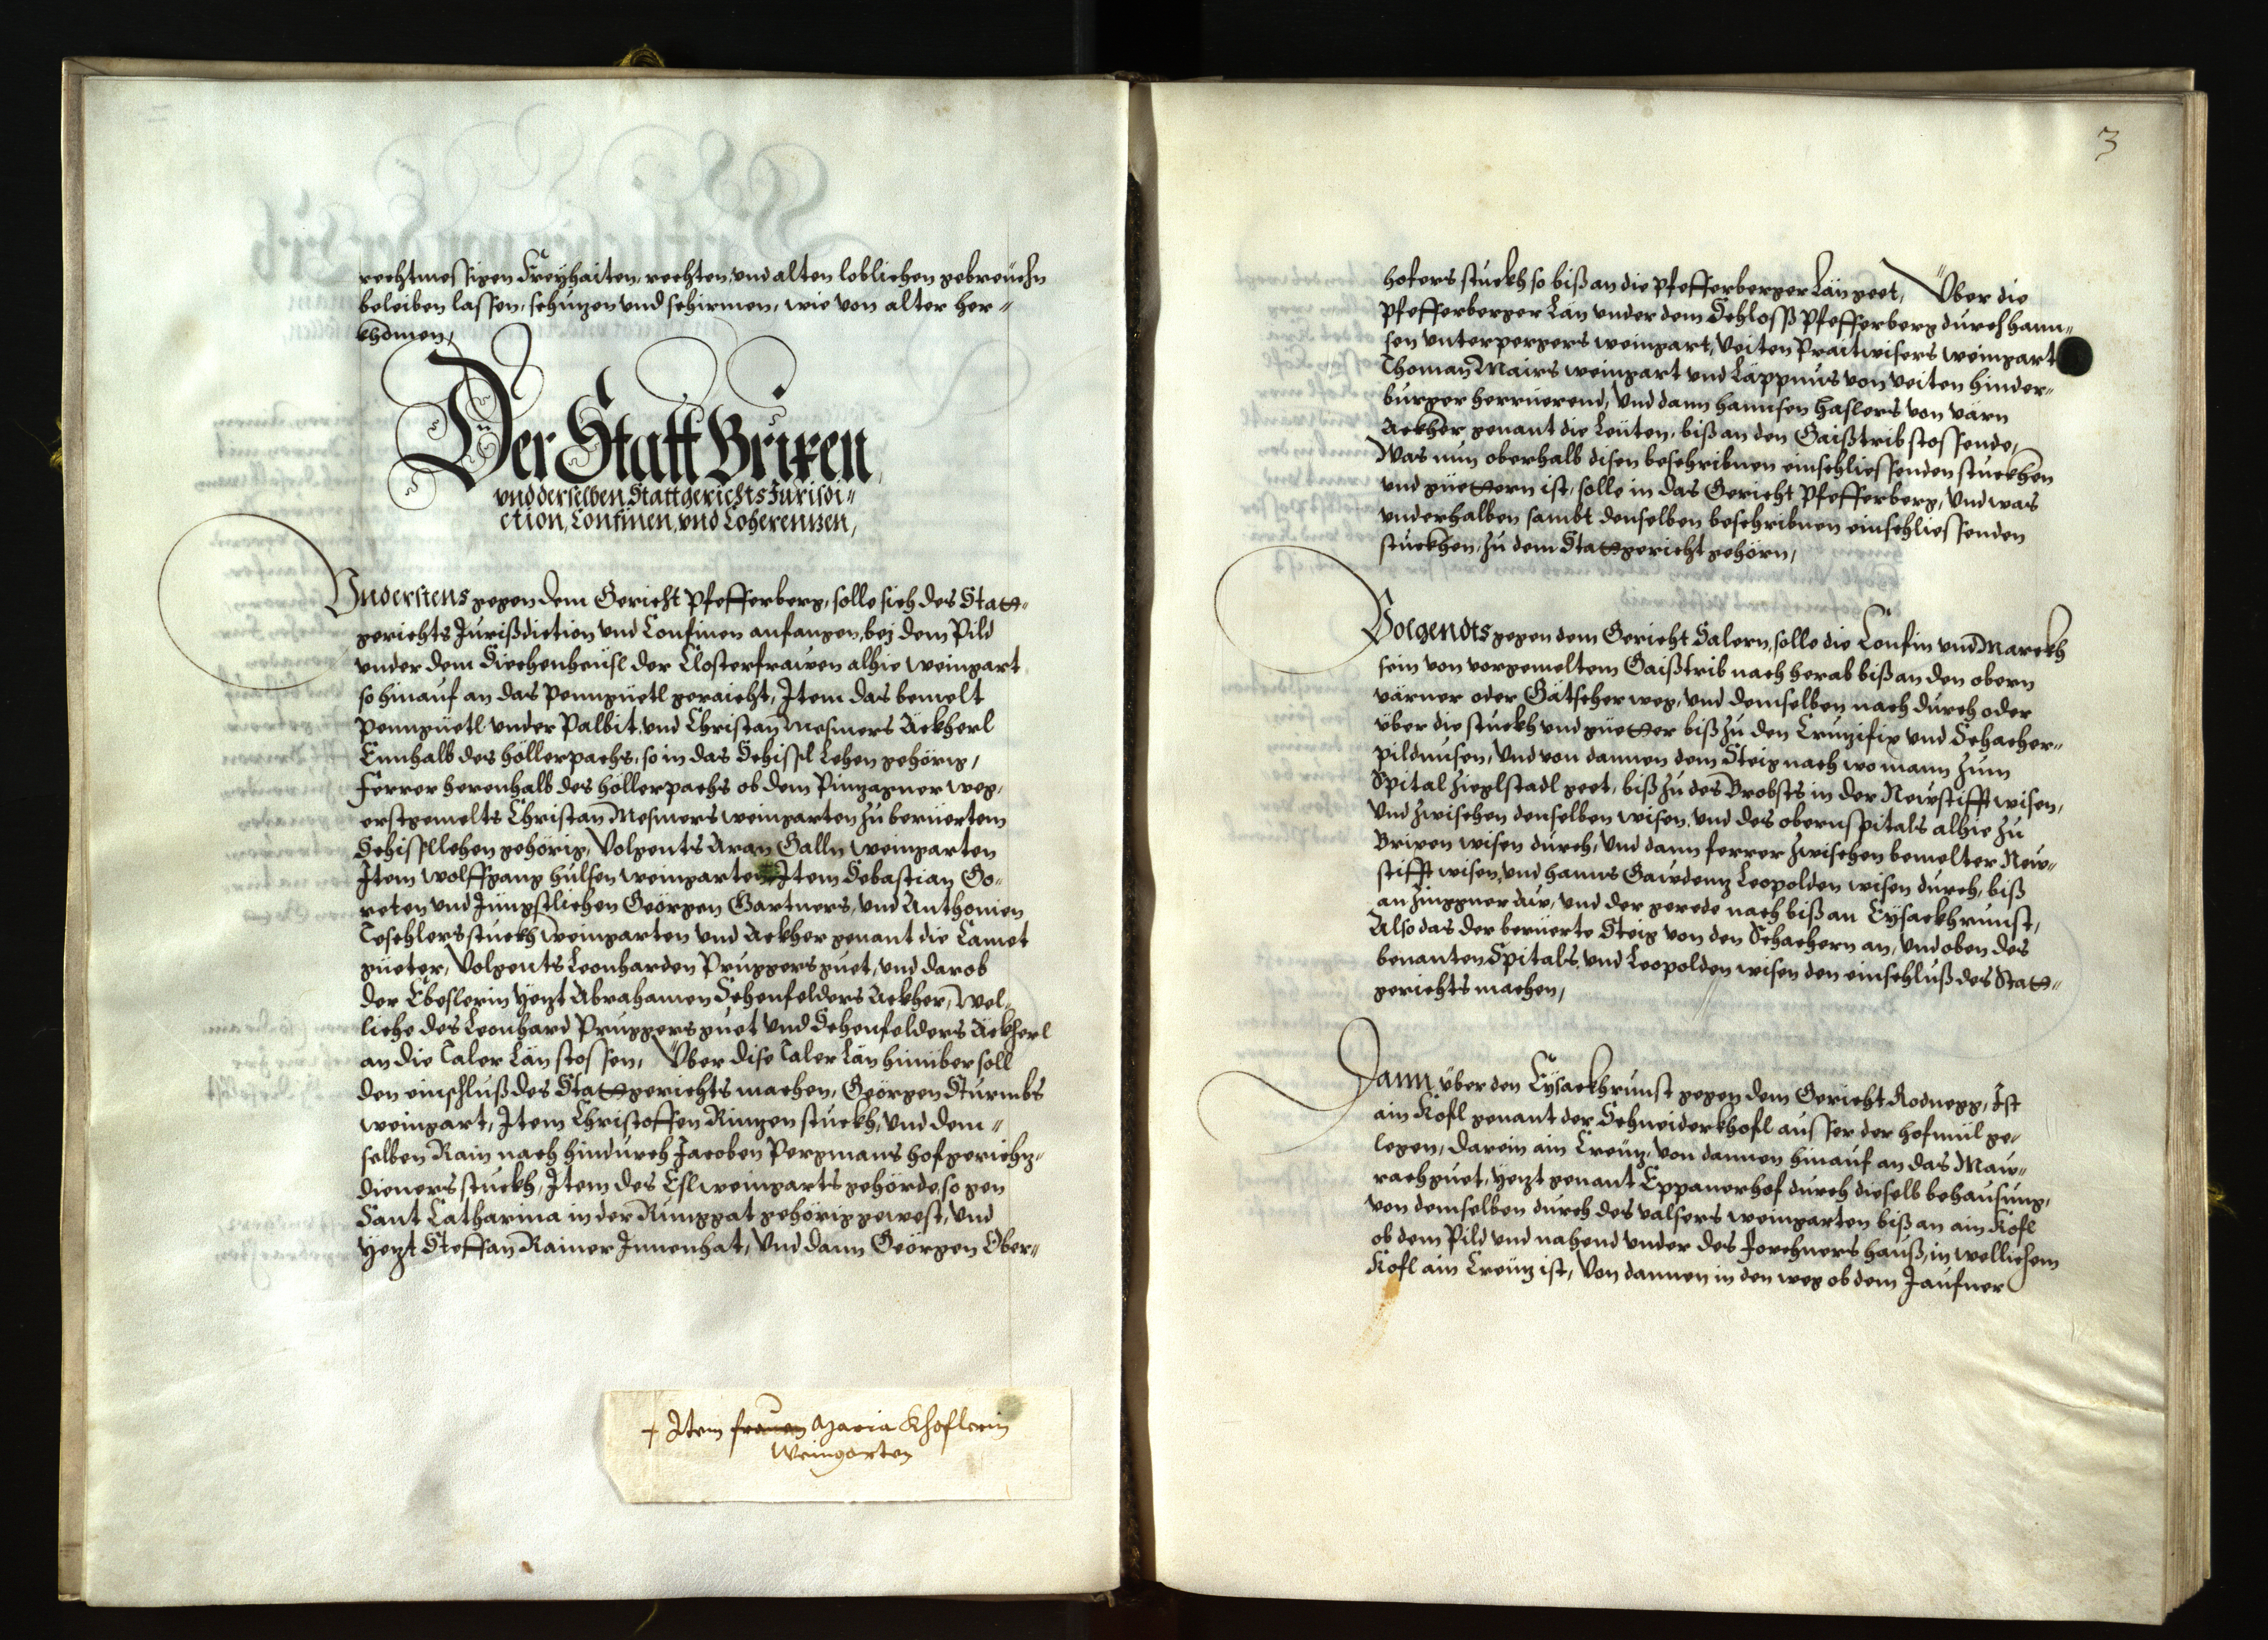 rechtmessigen Freyhaiten, rechten, und alten loblichen gebreüchn
beleiben lassen, schuzen und schirmen, wie von alter her„
khomen,
Der Statt Brixen
und derselben Stattgerichts Jurisdi„
ction, Confinen, und Coherenzen,
Vnderstens gegen dem Gericht Pfefferberg, solle sich des Statt„
gerichts Jurißdiction und Confinen anfangen, bej dem Pild
under dem Siechenheüsl der Closterfrawen alhie weingart
so hinauf an das Penngüetl geraicht, Item das bemelt
Penngüetl under Palbit, und Christan Mesners Äckherl
Ennhalb des höllerpachs, so in das Schissl Lehen gehörig,
Ferrer herenhalb des höllerpachs ob dem Pinzagner weg,
erstgemelts Christan Mesners weingarten zu berüertem
Schissllehen gehörig, Volgents Aran Galln weingarten
Item wolffgang hülsen weingarten, Item Sebastian Go„
reten und Jüngstlichen Geörgen Gartners, und Anthonien
Töschlers stuckh weingarten und Ackher genant die Lamet
güeter, Volgents Leonharden Pruggers guet, und darob
der Ebeslerin yezt Abrahamen Sehenfelders Ackher, wel„
liche des Leonhard Pruggers guet und Sehenfelders Äckherl
an die Taler Län stossen, Über dise Taler Län hinüber soll
den einschluß des Stattgerichts machen, Geörgen Sturmbs
weingart, Item Christoffen Ringen stuckh, und dem„
selben Rain nach hindurch Jacoben Pergmans hofgerichz„
dieners stuckh, Item des Esl weingarts gehörde, so gen
Sant Catharina in der Runggat gehörig gewest, und
yezt Steffan Rainer Innenhat, Und dann Geörgen Ober„
+ Item frauen Maria Khoflerin
Weingarten
3
hofers stuckh so biß an die Pfefferberger Län geet, Über die
Pfefferberger Län under dem Schloss Pfefferberg durch hann„
sen unterpergers weingart, Veiten Praitwisers weingart
Thoman Mairs weingart und Läppnus von veiten hinder„
burger herrüerend, Und dann hannsen haslers von värn
Äckher genant die Leüten, biß an den Gaißtrib stossende,
Was nun oberhalb disen beschribnen einschliessenden stuckhen
und güettern ist, solle in das Gericht Pfefferberg, Und was
underhalben sambt denselben beschribnen einschliessenden
stuckhen, zu dem Stattgericht gehörn,
Volgendts gegen dem Gericht Salern, solle die Confin und Marckh
sein von vorgemeltem Gaißtrib nach herab biß an den obern
värner oder Gätscher weg, und demselben nach durch oder
über die stuckh und güetter biß zu den Cruzifix und Schacher„
pildnusen, Und von dannen dem Steig nach wo mann zum
Spital Zieglstadl geet, biß zu des Brobsts in der Newstifft wisen,
und zwischen denselben wisen, und des obern Spitals alhie zu
Brixen wisen durch, Und dann ferrer zwischen bemelter New„
stifft wisen, und hanns Gaudenz Leopolden wisen durch, biß
an Zinggner Aw, und der gerede nach biß an Eysackhrunst,
Also das der berüerte Steig von den Schachern an, Und oben des
benanten Spitals, und Leopolden wisen den einschluß des Statt„
gerichts machen,
Dann über den Eysackhrunst gegen dem Gericht Rodnegg, Ist
ain Kofl genant der Schneiderkhofl ausser der hofmül ge„
legen, darein ain Creüz, von dannen hinauf an das Maur„
rachguet, yezt genant Eppanerhof durch dieselb behausung,
von demselben durch des valsers weingarten biß an ain Kofl
ob dem Pild und nahend under des Jorchners hauß, in wellichem
Kofl ain Creüz ist, Von dannen in den weg ob dem Jaufner